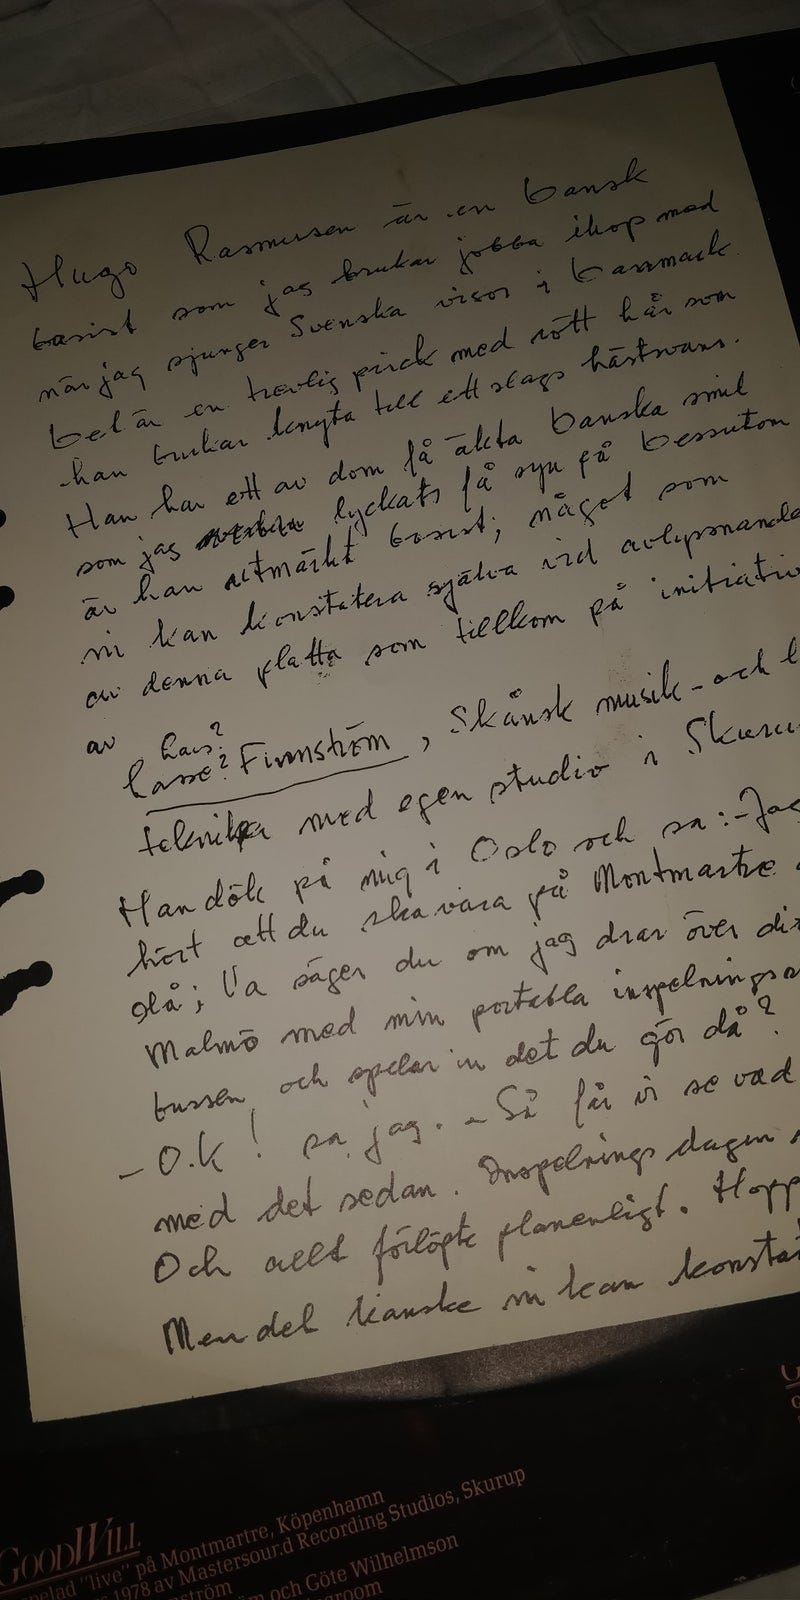 Hugo Rasmussen är en dansk
basist som jag brukar jobba ihop med
när jag sjunger Svenska visor i Danmark
Det är en trevlig prick med rött hår som
han brukar knyta till ett slags hästsvans.
Han har ett av dom få äkta Danska smil
som jag lyckats få syn på Dessutom
är han utmärkt basist, något som
ni kan konstatera själva vid avlyssnande
av denna platta som tillkom på initiativ
av Lars?
Lasse? Finnström, Skånsk musik- och l
tekniker med egen studio i Skuru
Han dök på mig i Oslo och sa:-Jag
hört att du ska vara på Montmartre
då; Va säger du om jag drar över di
Malmö med min portabla inspelnings
bussen och spelar in det du gör då?
- O.K! sa jag. - Så får vi se vad
med det sedan. Inspelnings dagen
Och allt förlöpte planenligt. Hopp
Men det kanske ni kan konstat
GOODWILL
pelad "live" på Montmartre, Köpenhamn
1978 av Mastersour.d Recording Studios, Skurup
ström
m och Göte Wilhelmson
groom